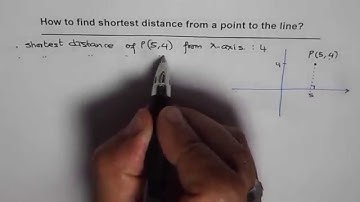 How to find shortest distance from a point to the line?
. shortest distance of P(5,4) from x-axis : 4
. " " "
P(5,4)
4
5